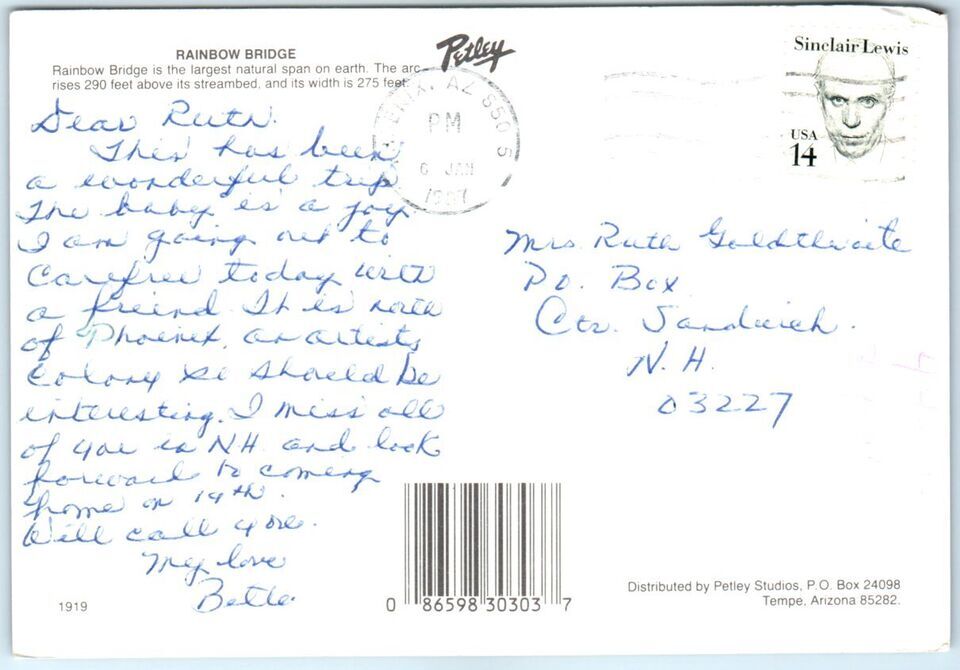 RAINBOW BRIDGE
Rainbow Bridge is the largest natural span on earth. The arc
rises 290 feet above its streambed, and its width is 275 feet.
Petley
AZ 850
PM
6 JAN
1987
Sinclair Lewis
USA
14
Dear Ruth.
This has been
a wonderful trip
The baby is a joy.
I am going out to
Carefree today with
a friend. It is north
of Phoenix, an artists
colony so should be
interesting. I miss all
of you in NH. and look
forward to coming
home on 14th.
Will call you.
My love
Mrs. Ruth Goldthwaite
P.O. Box
Ctr. Sandwich.
N.H.
03227
1919
0 86598 30303 7
Distributed by Petley Studios, P.O. Box 24098
Tempe, Arizona 85282.